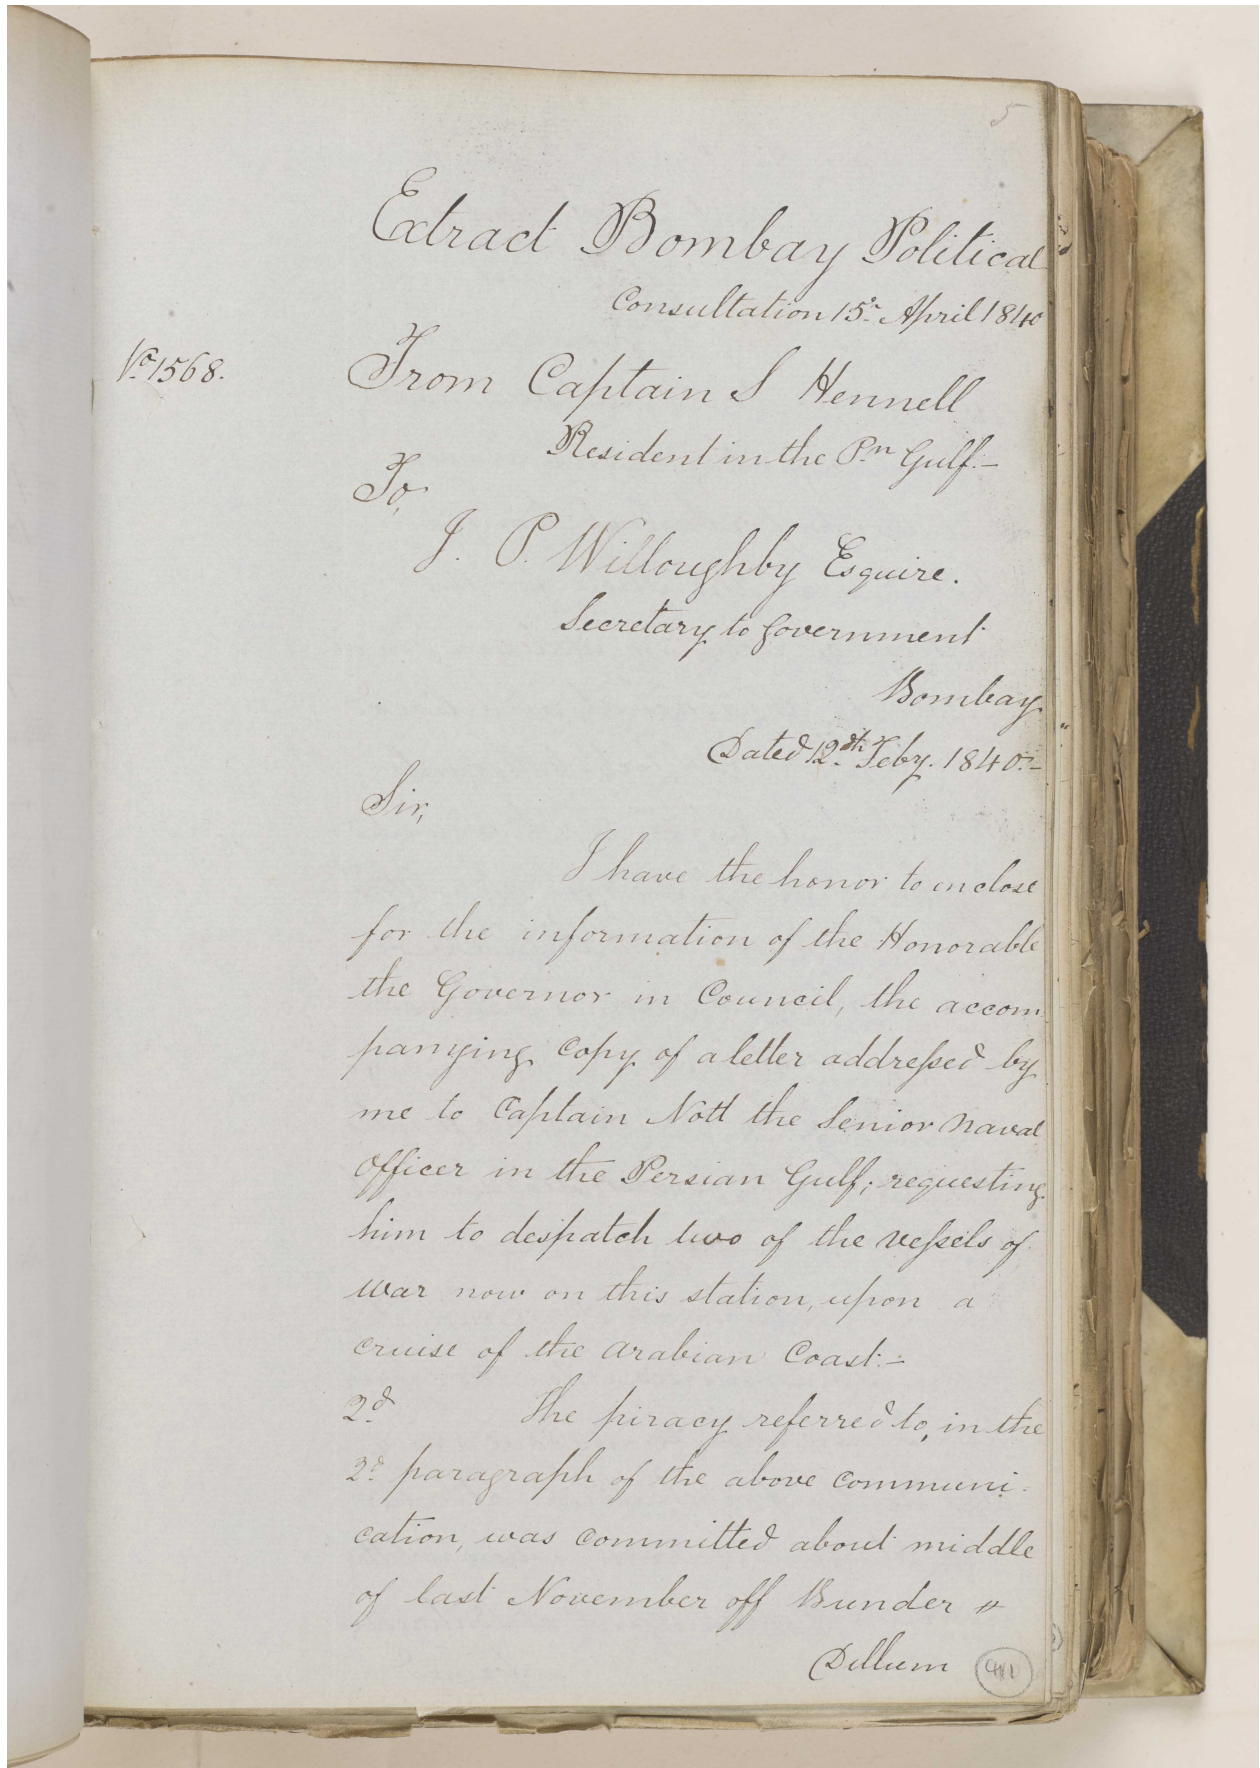 5
Extract Bombay Political
Consultation 15th April 1840
No. 1568.
From Captain S Hennell
Resident in the Pn. Gulf.—
To,
J. P. Willoughby Esquire.
Secretary to Government
Bombay.
Dated 12th Feby. 1840.—
Sir,
I have the honor to enclose
for the information of the Honorable
the Governor in Council, the accom
panying copy of a letter addressed by
me to Captain Nott the Senior Naval
Officer in the Persian Gulf; requesting
him to despatch two of the vessels of
war now on this station, upon a
cruise of the Arabian Coast.—
2d. The piracy referred to, in the
2d. paragraph of the above communi-
cation, was committed about middle
of last November off Bunder "
Dellum